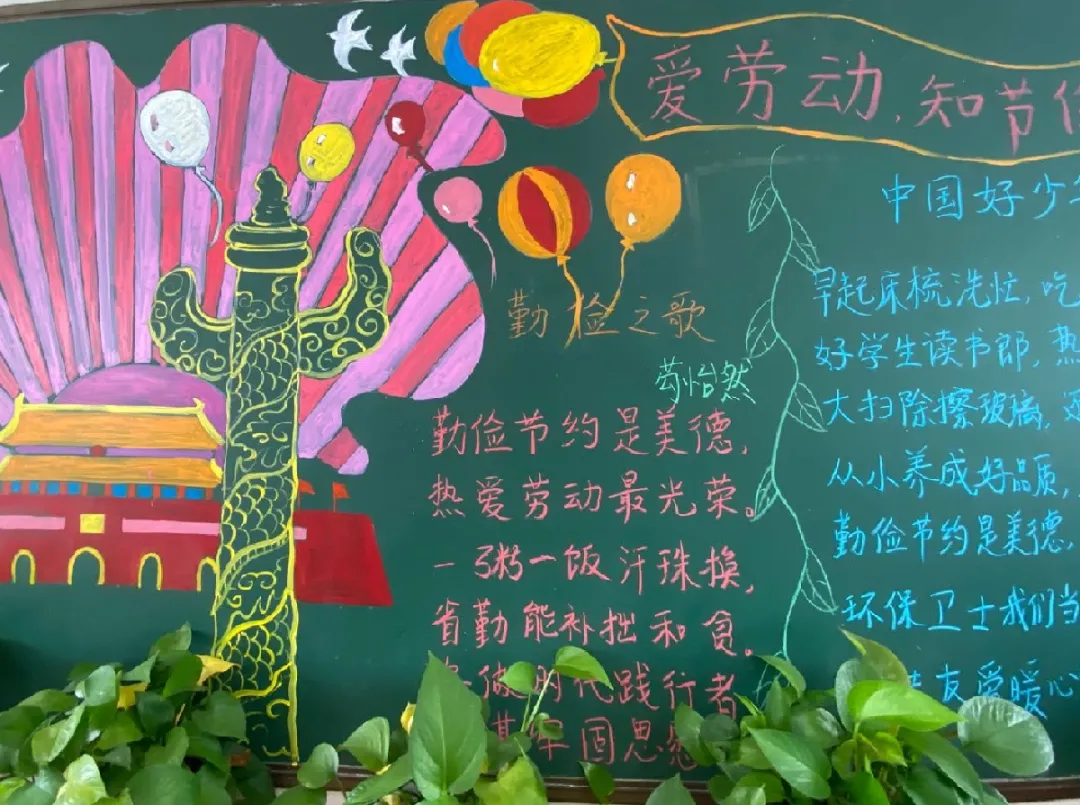 爱劳动,知节
勤俭之歌
苟怡然
勤俭节约是美德,
热爱劳动最光荣。
一粥一饭汗珠换,
省勤能补拙和贪。
做时代践行者
牢固思
中国好少
早起床梳洗忙,吃
好学生读书郎,热
大扫除擦玻璃,
从小养成好品质,
勤俭节约是美德,
环保卫士我们当
友爱暖心